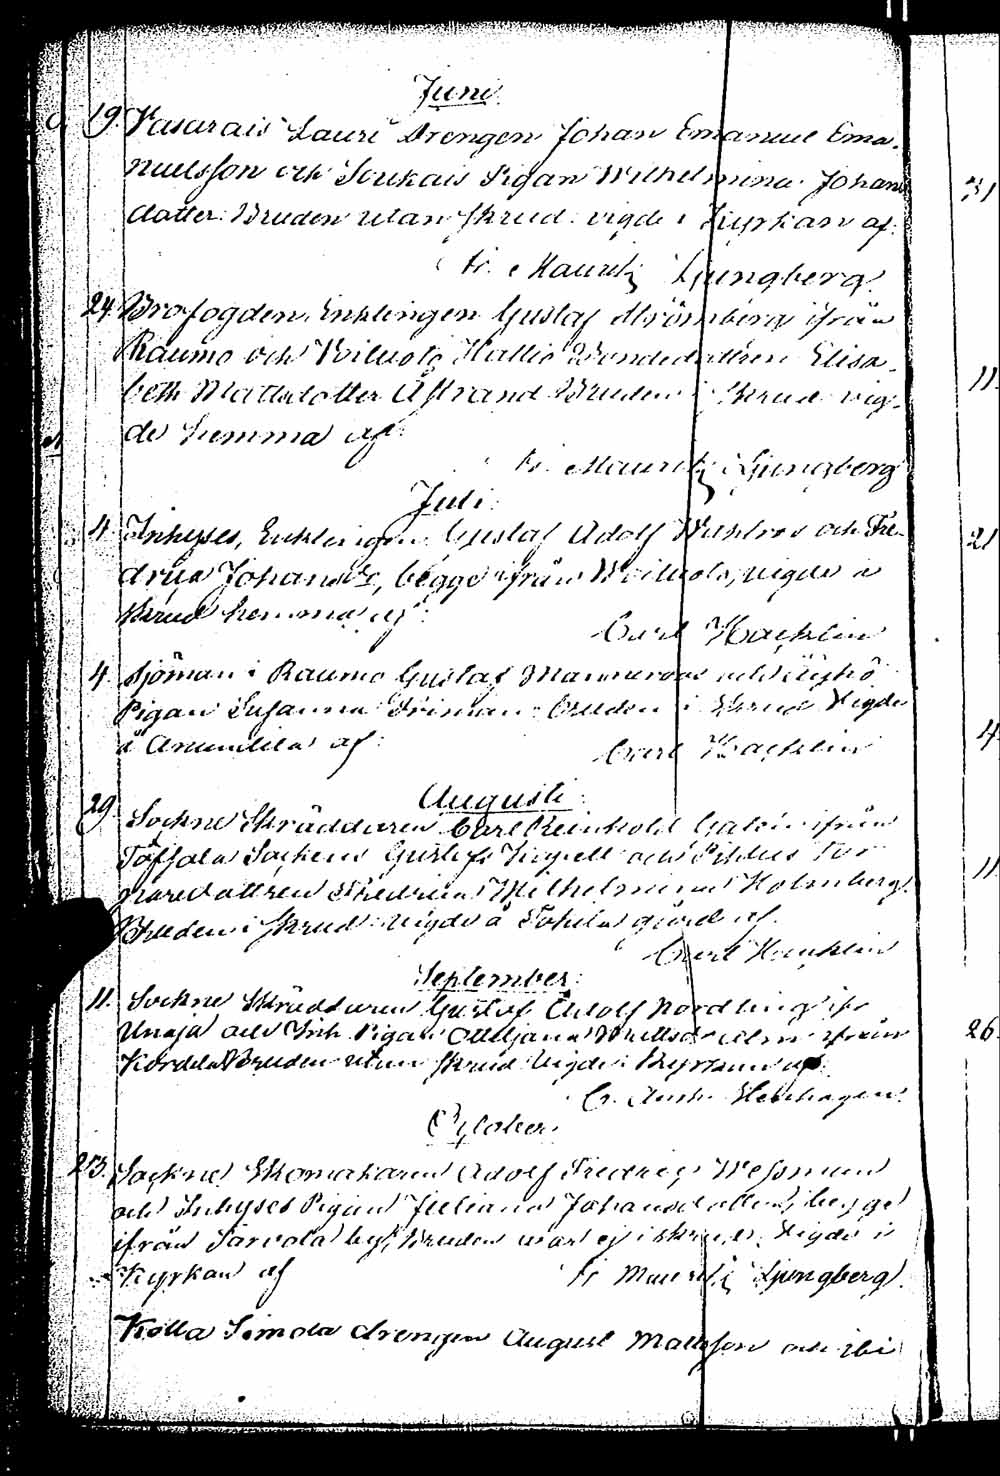 Juni
19. Vasarais Lauri Drengen Johan Emanuel Ema-
nuelsson och Soukais Pigan Wilhelmina Johans
dotter Bruden utan skrud vigde i Kyrkan af:
Fr. Mauritz Ljungberg
24. Brofogden Enklingen Gustaf Strömberg ifrån
Raumo och Voiluoto Hallio Bondedottren Elisa-
beth Mattsdotter Åstrand Bruden i Skrud vig-
de hemma af:
Fr. Mauritz Ljungberg
Juli
4. Inhyses Enklingen Gustaf Adolf och Fre-
drica Johansdr, begge ifrån Voiluoto, vigde i
skrud hemma af:
Carl Hacklin
4. Sjöman i Raumo Gustaf och
Pigan Susanna Friman Bruden i Skrud Vigde
å Anundila af:
Carl Hacklin
Augusti
29. Sockne Skräddaren Carl Reinhold ifrån
Töffsala Sockens Gustafs Kapell och Tor
paredottren Fredrica Wilhelmina Holmberg
Bruden i skrud vigde å gård af
Carl Hacklin
September
11. Sockne Skräddaren Gustaf Adolf Nordling ifr
Unaja och Inh. Pigan ifrån
Kordela Bruden utan skrud Vigde i Kyrkan af
October
23. Sockne Skomakaren Adolf Fredric Wessman
och Inhyses Pigan Juliana Johansdotter, begge
ifrån Sarvola by, Bruden war ej i skrud. Vigde i
Kyrkan af Fr Mauritz Ljungberg
Kolla Simola drengen August Mattsson och ibi
31
11
21
4
11
26